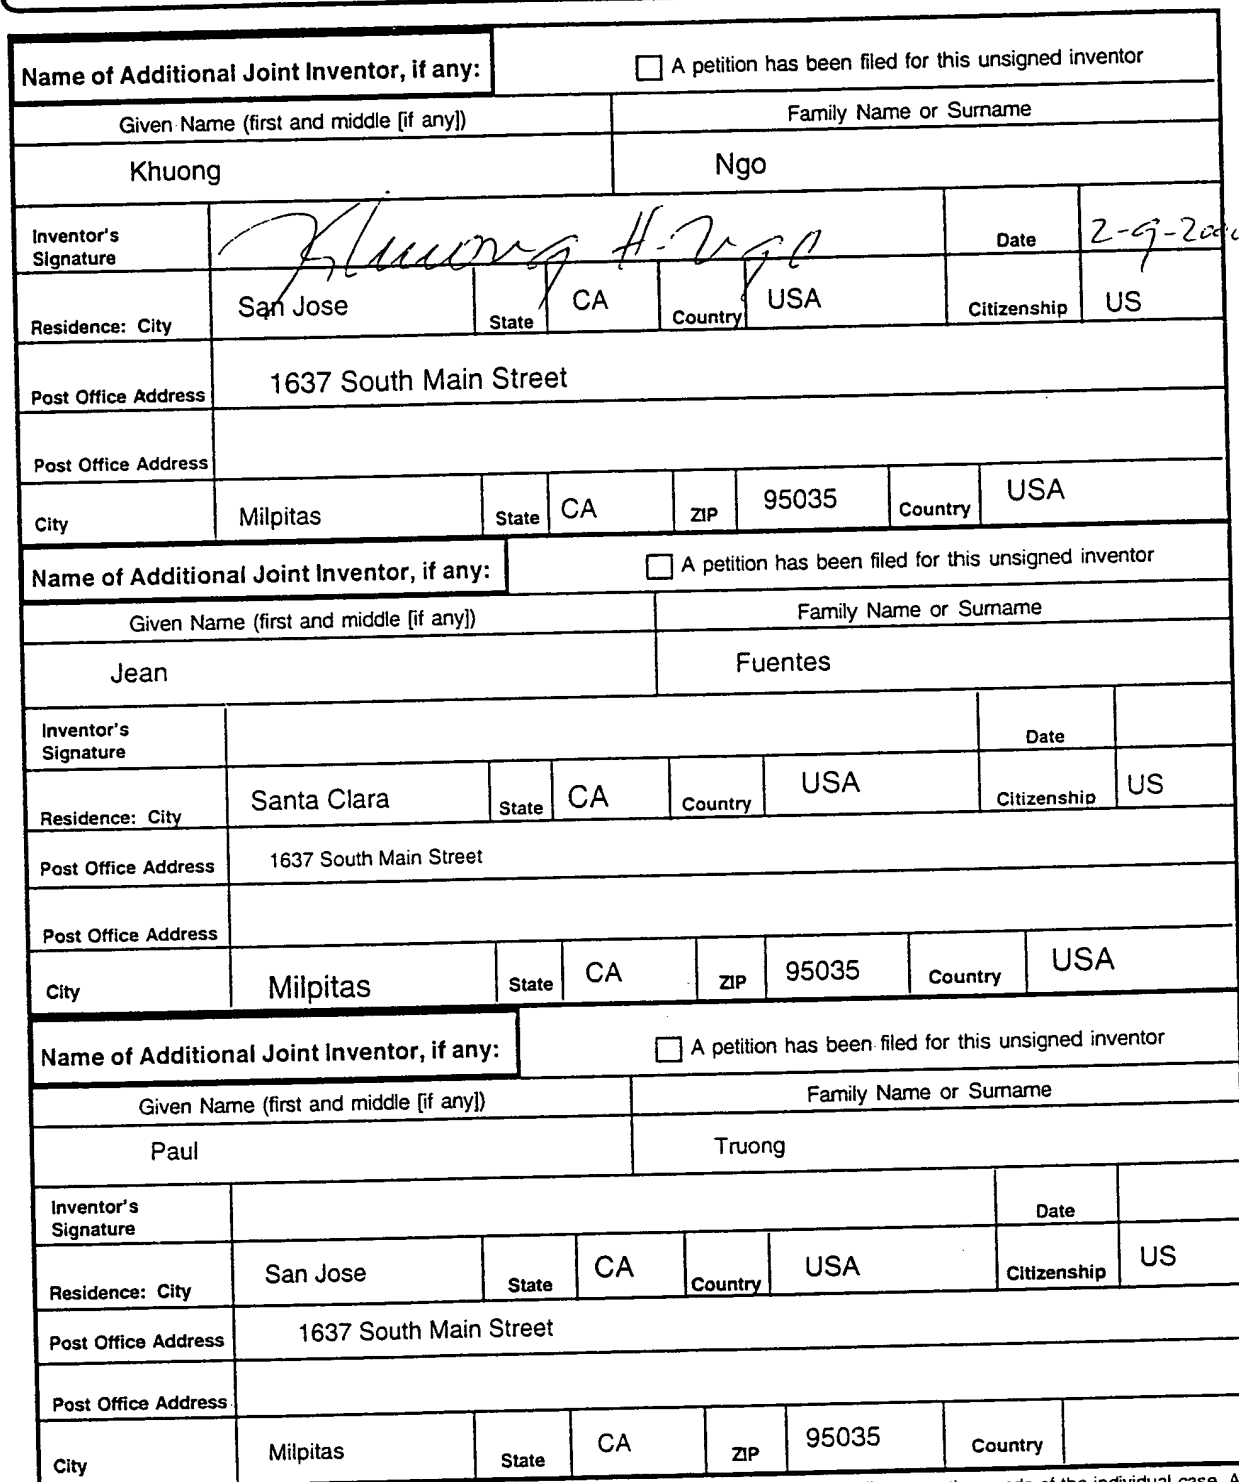 Name of Additional Joint Inventor, if any: A petition has been filed for this unsigned inventor
Given Name (first and middle [if any]) Family Name or Surname
Khuong Ngo
Inventor's Signature Khuong H. Ngo Date 2-9-2000
Residence: City San Jose State CA Country USA Citizenship US
Post Office Address 1637 South Main Street
Post Office Address
City Milpitas State CA ZIP 95035 Country USA
Name of Additional Joint Inventor, if any: A petition has been filed for this unsigned inventor
Given Name (first and middle [if any]) Family Name or Surname
Jean Fuentes
Inventor's Signature Date
Residence: City Santa Clara State CA Country USA Citizenship US
Post Office Address 1637 South Main Street
Post Office Address
City Milpitas State CA ZIP 95035 Country USA
Name of Additional Joint Inventor, if any: A petition has been filed for this unsigned inventor
Given Name (first and middle [if any]) Family Name or Surname
Paul Truong
Inventor's Signature Date
Residence: City San Jose State CA Country USA Citizenship US
Post Office Address 1637 South Main Street
Post Office Address
City Milpitas State CA ZIP 95035 Country
of the individual case. A